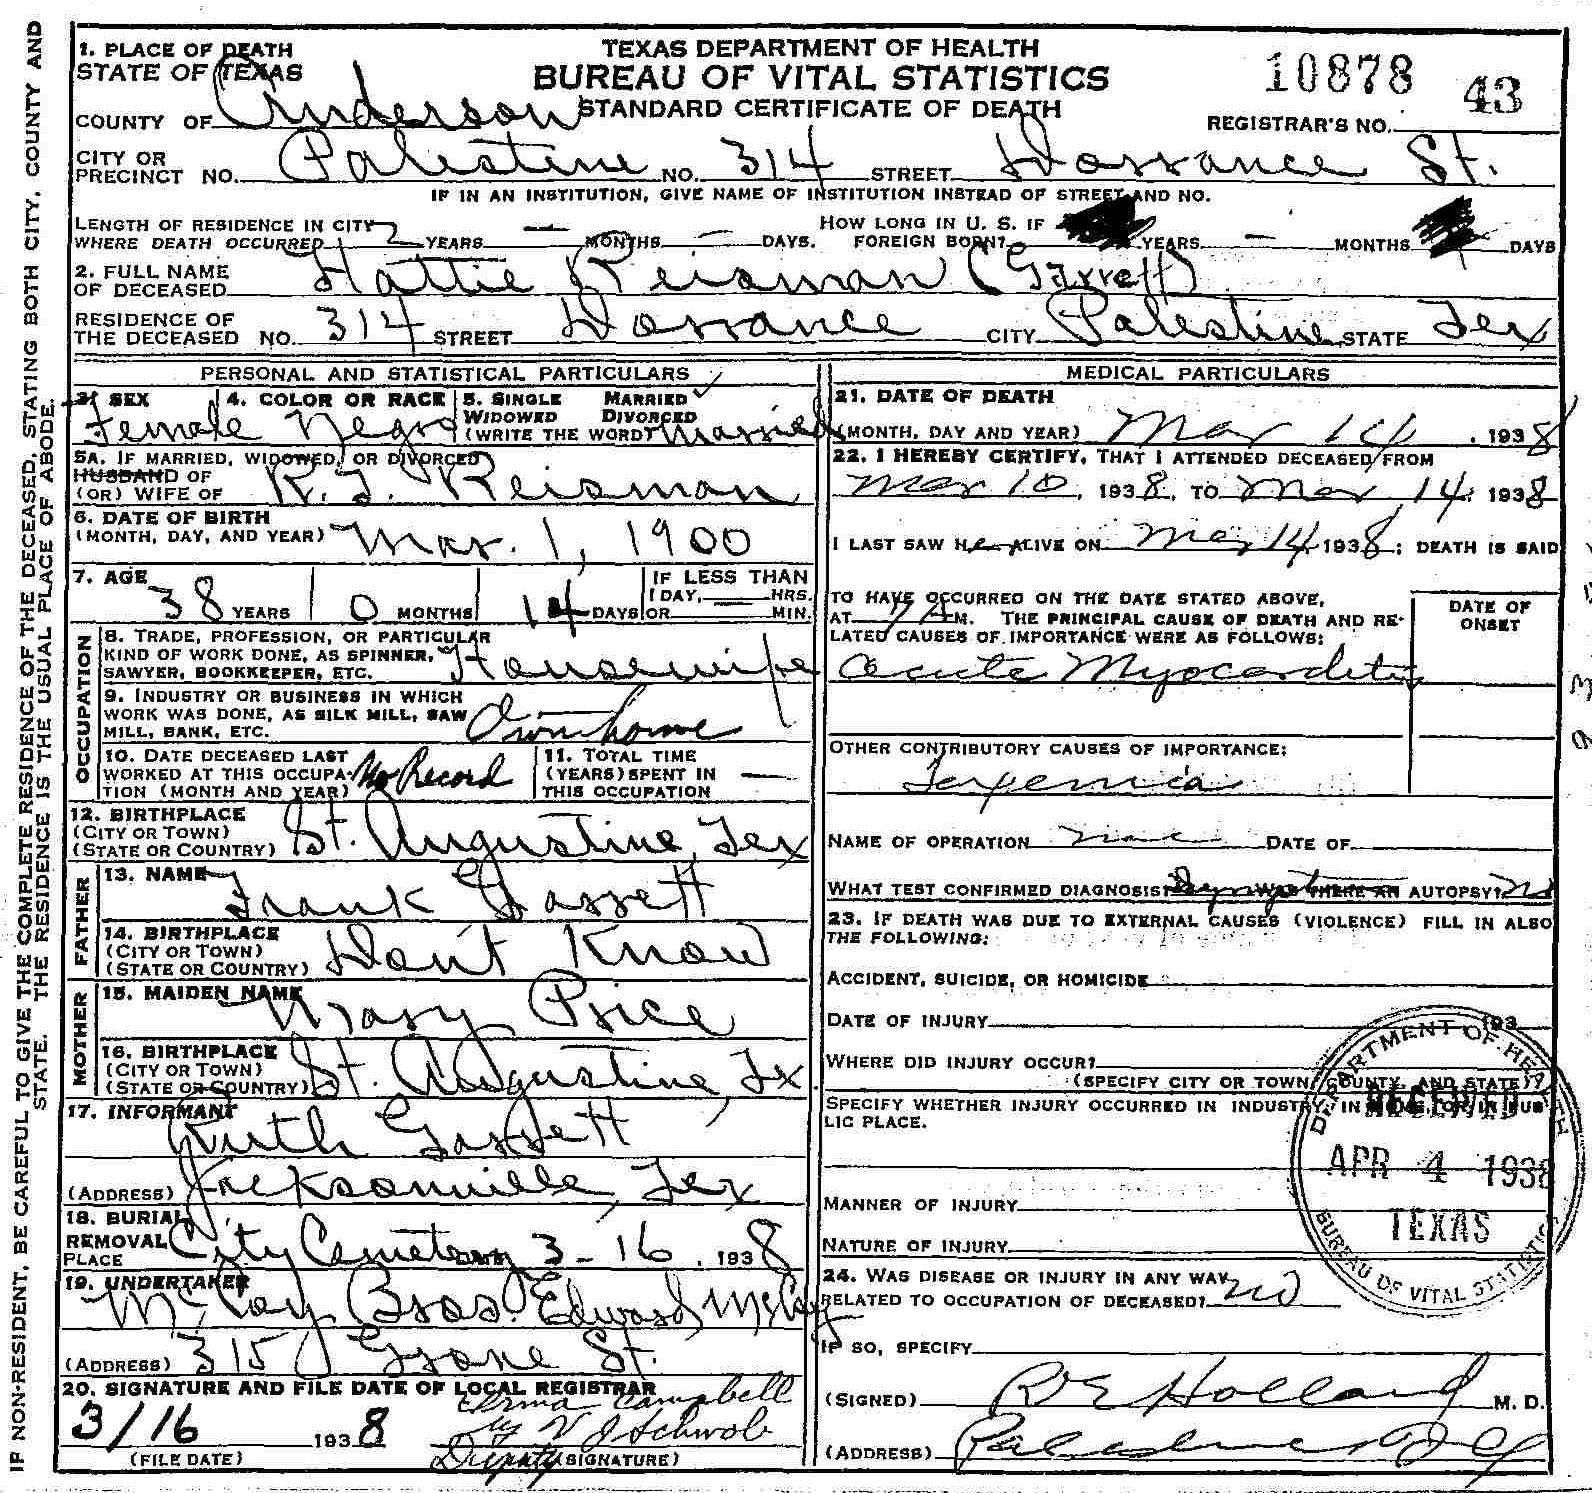 IF NON-RESIDENT, BE CAREFUL TO GIVE THE COMPLETE RESIDENCE OF THE DECEASED, STATING BOTH CITY, COUNTY AND
STATE. THE RESIDENCE IS THE USUAL PLACE OF ABODE.
1. PLACE OF DEATH
STATE OF TEXAS
TEXAS DEPARTMENT OF HEALTH
BUREAU OF VITAL STATISTICS
STANDARD CERTIFICATE OF DEATH
10878 43
COUNTY OF Anderson
REGISTRAR'S NO.
CITY OR
PRECINCT NO. Palestine NO. 314 STREET Dorrance St.
IF IN AN INSTITUTION, GIVE NAME OF INSTITUTION INSTEAD OF STREET AND NO.
LENGTH OF RESIDENCE IN CITY
WHERE DEATH OCCURRED 2 YEARS — MONTHS — DAYS. HOW LONG IN U. S. IF
FOREIGN BORN? YEARS — MONTHS DAYS
2. FULL NAME
OF DECEASED Hattie Reisman (Garrett)
RESIDENCE OF
THE DECEASED NO. 314 STREET Dorrance CITY Palestine STATE Tex
PERSONAL AND STATISTICAL PARTICULARS
3. SEX Female
4. COLOR OR RACE Negro
5. SINGLE MARRIED ✓
WIDOWED DIVORCED
(WRITE THE WORD) Married
5A. IF MARRIED, WIDOWED, OR DIVORCED
HUSBAND OF
(OR) WIFE OF Reisman
6. DATE OF BIRTH
(MONTH, DAY, AND YEAR) Mar. 1, 1900
7. AGE 38 YEARS 0 MONTHS 14 DAYS
IF LESS THAN
1 DAY, — HRS.
OR MIN.
OCCUPATION
8. TRADE, PROFESSION, OR PARTICULAR
KIND OF WORK DONE, AS SPINNER,
SAWYER, BOOKKEEPER, ETC. Housewife
9. INDUSTRY OR BUSINESS IN WHICH
WORK WAS DONE, AS SILK MILL, SAW
MILL, BANK, ETC. Own home
10. DATE DECEASED LAST
WORKED AT THIS OCCUPA-
TION (MONTH AND YEAR) No Record
11. TOTAL TIME
(YEARS) SPENT IN
THIS OCCUPATION —
12. BIRTHPLACE
(CITY OR TOWN)
(STATE OR COUNTRY) St. Augustine, Tex
FATHER
13. NAME Frank Garrett
14. BIRTHPLACE
(CITY OR TOWN)
(STATE OR COUNTRY) Don't Know
MOTHER
15. MAIDEN NAME Mary Price
16. BIRTHPLACE
(CITY OR TOWN)
(STATE OR COUNTRY) St. Augustine, Tex
17. INFORMANT Ruth Garrett
(ADDRESS) Jacksonville, Tex
18. BURIAL
REMOVAL
PLACE City Cemetery DATE 3-16, 1938
19. UNDERTAKER McCoy Bros. Edward McCoy
(ADDRESS) 315 St.
20. SIGNATURE AND FILE DATE OF LOCAL REGISTRAR
Erma Campbell
3/16 1938 by V J Schwob
(FILE DATE) Deputy (SIGNATURE)
MEDICAL PARTICULARS
21. DATE OF DEATH
(MONTH, DAY AND YEAR) Mar 14, 1938
22. I HEREBY CERTIFY, THAT I ATTENDED DECEASED FROM
Mar 10, 1938, TO Mar 14, 1938
I LAST SAW Her ALIVE ON Mar 14, 1938; DEATH IS SAID
TO HAVE OCCURRED ON THE DATE STATED ABOVE,
AT 7 A M. THE PRINCIPAL CAUSE OF DEATH AND RE-
LATED CAUSES OF IMPORTANCE WERE AS FOLLOWS:
DATE OF
ONSET
Acute Myocarditis
OTHER CONTRIBUTORY CAUSES OF IMPORTANCE:
Toxemia
NAME OF OPERATION none DATE OF
WHAT TEST CONFIRMED DIAGNOSIS? WAS THERE AN AUTOPSY? no
23. IF DEATH WAS DUE TO EXTERNAL CAUSES (VIOLENCE) FILL IN ALSO
THE FOLLOWING:
ACCIDENT, SUICIDE, OR HOMICIDE
DATE OF INJURY 193
WHERE DID INJURY OCCUR?
(SPECIFY CITY OR TOWN, COUNTY, AND STATE)
SPECIFY WHETHER INJURY OCCURRED IN INDUSTRY, IN HOME, OR IN PUB-
LIC PLACE.
MANNER OF INJURY
NATURE OF INJURY
24. WAS DISEASE OR INJURY IN ANY WAY
RELATED TO OCCUPATION OF DECEASED? no
IF SO, SPECIFY
(SIGNED) R E Holland M. D.
(ADDRESS) Palestine Tex
DEPARTMENT OF HEALTH
RECEIVED
APR 4 1938
TEXAS
BUREAU OF VITAL STATISTICS